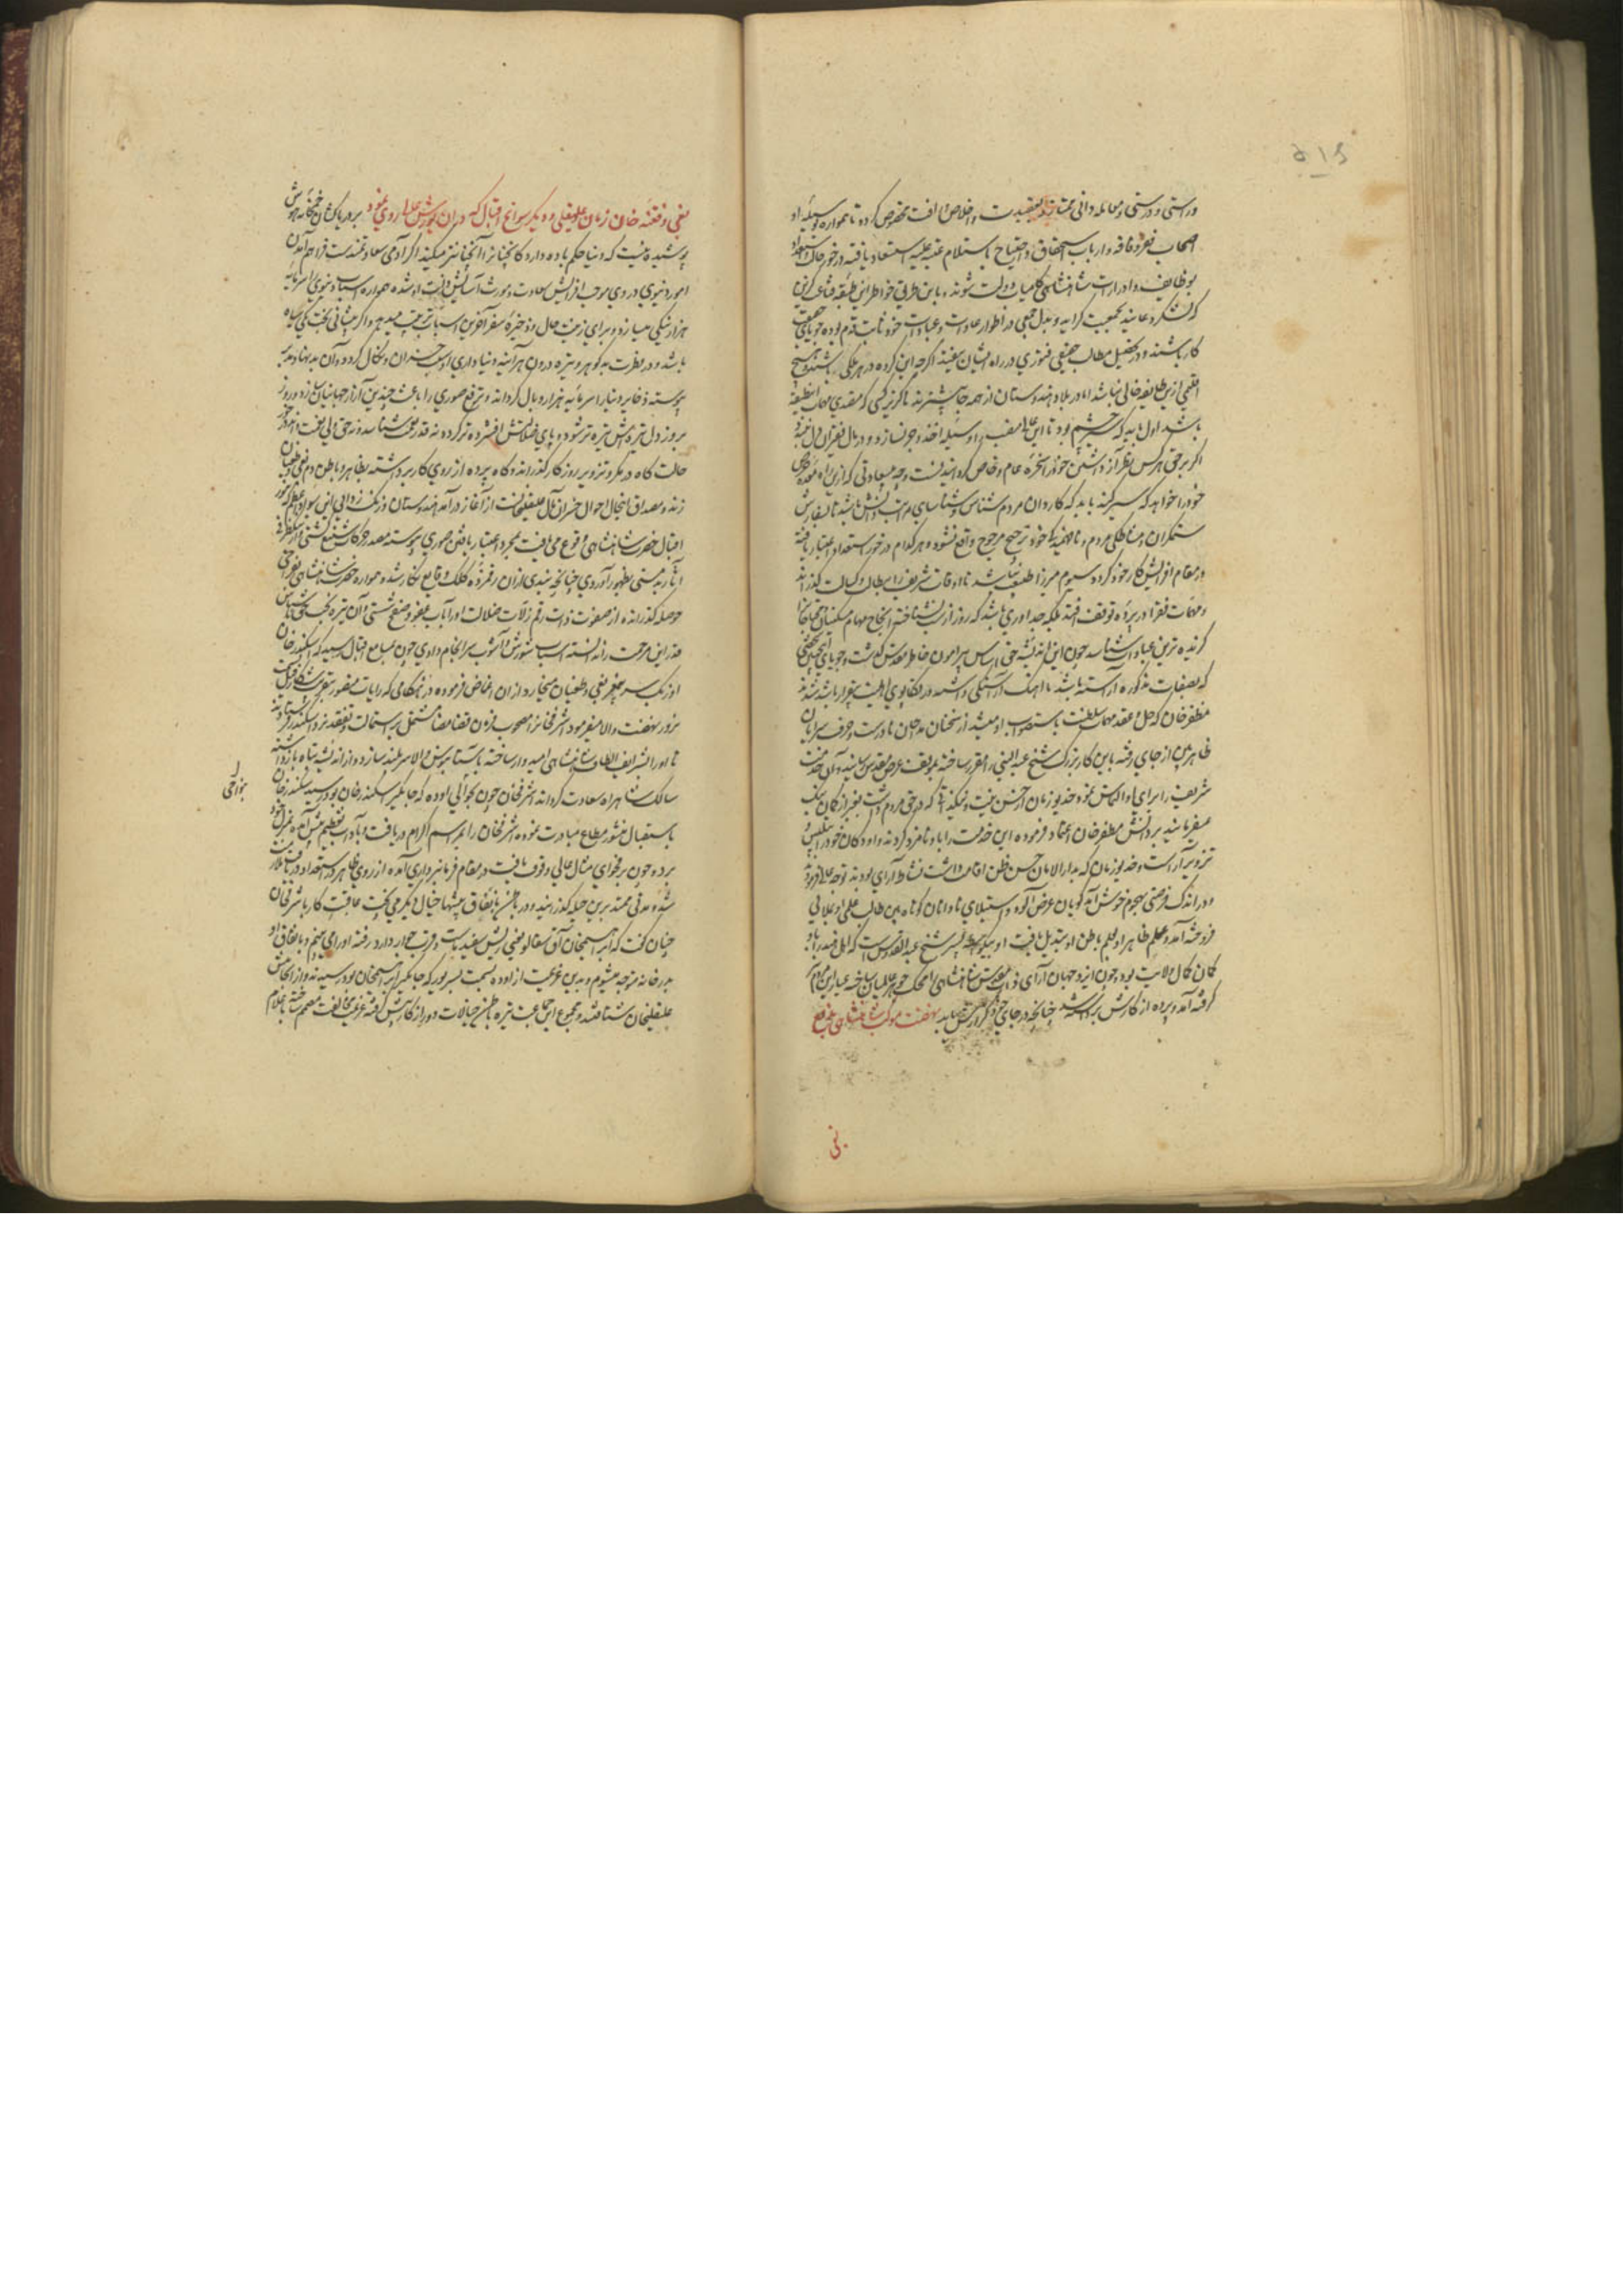 ۵۱۶
و راستی و درستی و معامله دانی ممتاز بعقیدت و اخلاص اتصاف مخصوص کرده تا همواره بوسیله او
اصحاب فقر و فاقه و ارباب استحقاق و احتیاج باستلام عتبه علیه استسعاد یافته درخور حالت و استعداد
بوظایف و ادرارات شاهنشاهی کامیاب دولت شوند و باین طریق خواطر این طبقه قناعت گزین
که لشکر دعا یند بجمعیت گراید و بدل جمعی در اطوار عادات و عبادات خود ثابت قدم بوده جویای حقیقت
کار باشند و در تحصیل مطالب حقیقی فتوری در راه ایشان نیفتد اگرچه این گروه در هر ملکی باشند و هیچ
اقلیمی ازین طایفه خالی نباشد اما در بلاد هندوستان از همه جا بیشترند ناگزیر کسی که متصدی مهمات این طبقه
باشد اول باید که سیر چشم بود تا این عالی منصب را وسیله اخذ و جر نسازد و در مال فقیران دل نبندد
اگر بر حق هر کس نظر آز داشتن خود را سخره عام و خاص گردانیدنست و چه سعادتی که ازین راه معده حرص
خود را خواهد که سیر کند باید که کاردان مردم شناس و شناسای مراتب دانش باشد تا بسفارش
ستمگران و مشاطگی مردم و نافهمیدگی خود ترجیح مرجوح واقع نشود و هر کدام درخور استعداد اعتبار یافته
در مقام افزایش کار خود گردد سیوم میرزا طبیعت نباشد تا اوقات شریف را ببطالت و کسالت گذراند
و مهمات فقرا در پرده توقف افتد بلکه جدآوری باشد که روز از شب نشناخته انجاح مهام مسکینان و محتاجان را
گزیده ترین عبادات شناسد چون این اندیشه حق اساس پیرامون خاطر مقدس گشت و جویای اینچنین شخصی
که بصفات مذکوره آراسته باشد با آهنگ آراستگی داشته در تکاپوی اهلیت برقرار باشد شدند
مظفر خان که حل و عقد مهمات سلطنت باستصواب او میشد از سخنان مداحان نادرست و حرف سرایان
ظاهر بین از جای رفته باین کار بزرگ شیخ عبدالنبی را مقرر ساخته بموقف عرض مقدس رسانید و آن خدمت
شریف را برای او التماس نمود خدیو زمان از حسن نیت و نیکذاتی که در حق مردم داشت بغیر از گمان نیک
نمیفرمایند بر دانش مظفر خان اعتماد فرموده این خدمت را باو نامزد کردند و او دکان خود را بتلبیس و
تزویر آراست و خدیو زمان که بدارالامان حسن ظن اقامت داشت نشاط آرای بودند توجه عالی افزودند
و در اندک فرصتی بهجوم خوش آمدگویان غرض آلود و استیلای نادانان کوتاه بین طالب علمی او بملائی
فروخته آمد و علم ظاهر او بعلم باطن او تبدیل یافت او بیکواسطه پسر شیخ عبدالقدوس است که اهل هند را باو
گمان کمال ولایت بود و چون ایزد جهان آرای ذات مقدس شاهنشاهی را محک جوهر عالمیان ساخته عیار این مرد
گرفته آمد و پرده از کارش برداشته شد چنانچه در جای خود گزارش یابد نهضت موکب شاهنشاهی بدفع
بغی و فتنه خان زمان و علیقلی و دیگر سوانح اقبال که در آن یورش عالی روی نمود بر دریاکشان خمخانه هوش
پوشیده نیست که دنیا حکم باده دارد که نیکانرا آنچنانتر میکند اگر آدمی سعادتمندست فراهم آمدن
امور دنیوی در وی موجب افزایش سعادت و مورث آسایش خلایق شده همواره اسباب دنیوی را سرمایه
هزار نیکی میسازد و برای زینت حال و ذخیره سفر آخرت اسباب ترتیب میدهد و اگر پیشانی بخت یکی سیاه
باشد و در فطرت بدگوهر و تیره درون هرآینه دنیاداری او سبب خسران و نکال گردد و آن بدنهاد بدسیر
پیوسته ذخایر دنیا را سرمایه هزار وبال گرداند و ترفع صوری را باعث چندین آزار جهانیان سازد و روز
بروز دل تیره اش تیره تر شود و پای ضلالتش افشرده تر گردد نه قدر نعمت شناسد و نه حق ولی نعمت
حالت گاه در مکر و تزویر روزگار گذراند و گاه پرده از روی کار برداشته بظاهر و باطن دم بغی و طغیان
زند و مصداق اینحال احوال خسران مآل علیقلیخان است از آغاز درآمد هندوستان و رنگ زدائی این سواد اعظم که بزور
اقبال حضرت شاهنشاهی وقوع می یافت بمجرد اعتبار یافتن صوری پیوسته مصدر حرکات شنیع گشتی و از تنگ ظرفی
آثار بدمستی بظهور آوردی چنانچه نبذی از آن رقمزده کلک وقایع نگار شده همواره حضرت شاهنشاهی
حوصله گذرانده از صفوت ذات رقم زلات ضلالت او را بآب عفو و صفح شستی و آن تیره بخت حق ناشناس
قدر این مرحمت را ندانسته اسباب شورش و آشوب سرانجام دادی چون بمسامع اقبال رسید که اسکندر خان
اوزبک سر بجیب بغی و طغیان میخارد از آن اغماض فرموده در هنگامی که رایات منصور بتقریب شکار فیل
نزور نهضت والا میفرمود اشرفخانرا مصحوب فرمان قضا مضا مشتمل بر استمالت و تفقد نزد اسکندر فرستادند
تا او را بشرایف الطاف شاهنشاهی امیدوار ساخته بآستانبوسی والا سربلند سازد و از اندیشه تباه بازداشته
سالک شاهراه سعادت گرداند اشرفخان چون بحوالی اوده که جایگیر اسکندر خان بود رسید سکندر خان
باستقبال منشور مطاع مبادرت نموده اشرفخان را بمراسم اکرام دریافت و بآداب تعظیم پیش آمده بمنزل خود
برد و چون بر فحوای مثال عالی وقوف یافت در مقام فرمانبرداری آمده از روی ظاهر در استعداد دریافت ملازمت
شد و مدتی ممتد برین حیله گذرانید و در باطن باتفاق پیشها خیال دیگر می پخت عاقبت کار باشرفخان
چنان گفت که ابراهیمخان آق سقال یعنی ریش سفید ماست و قرب جوار دارد رفته او را می بینم و باتفاق او
بدرخانه متوجه میشویم و بدین عزیمت از اوده بسمت سرور پور که جایگیر ابراهیمخان بود رسیدند و از آنجا پیش
علیقلیخان شتافتند و مجموع این جماعت تیره باطن خیالات دور از کار پیش گرفته عزیمت مخالفت مصمم ساخته باعلام
بنواحی
بغی